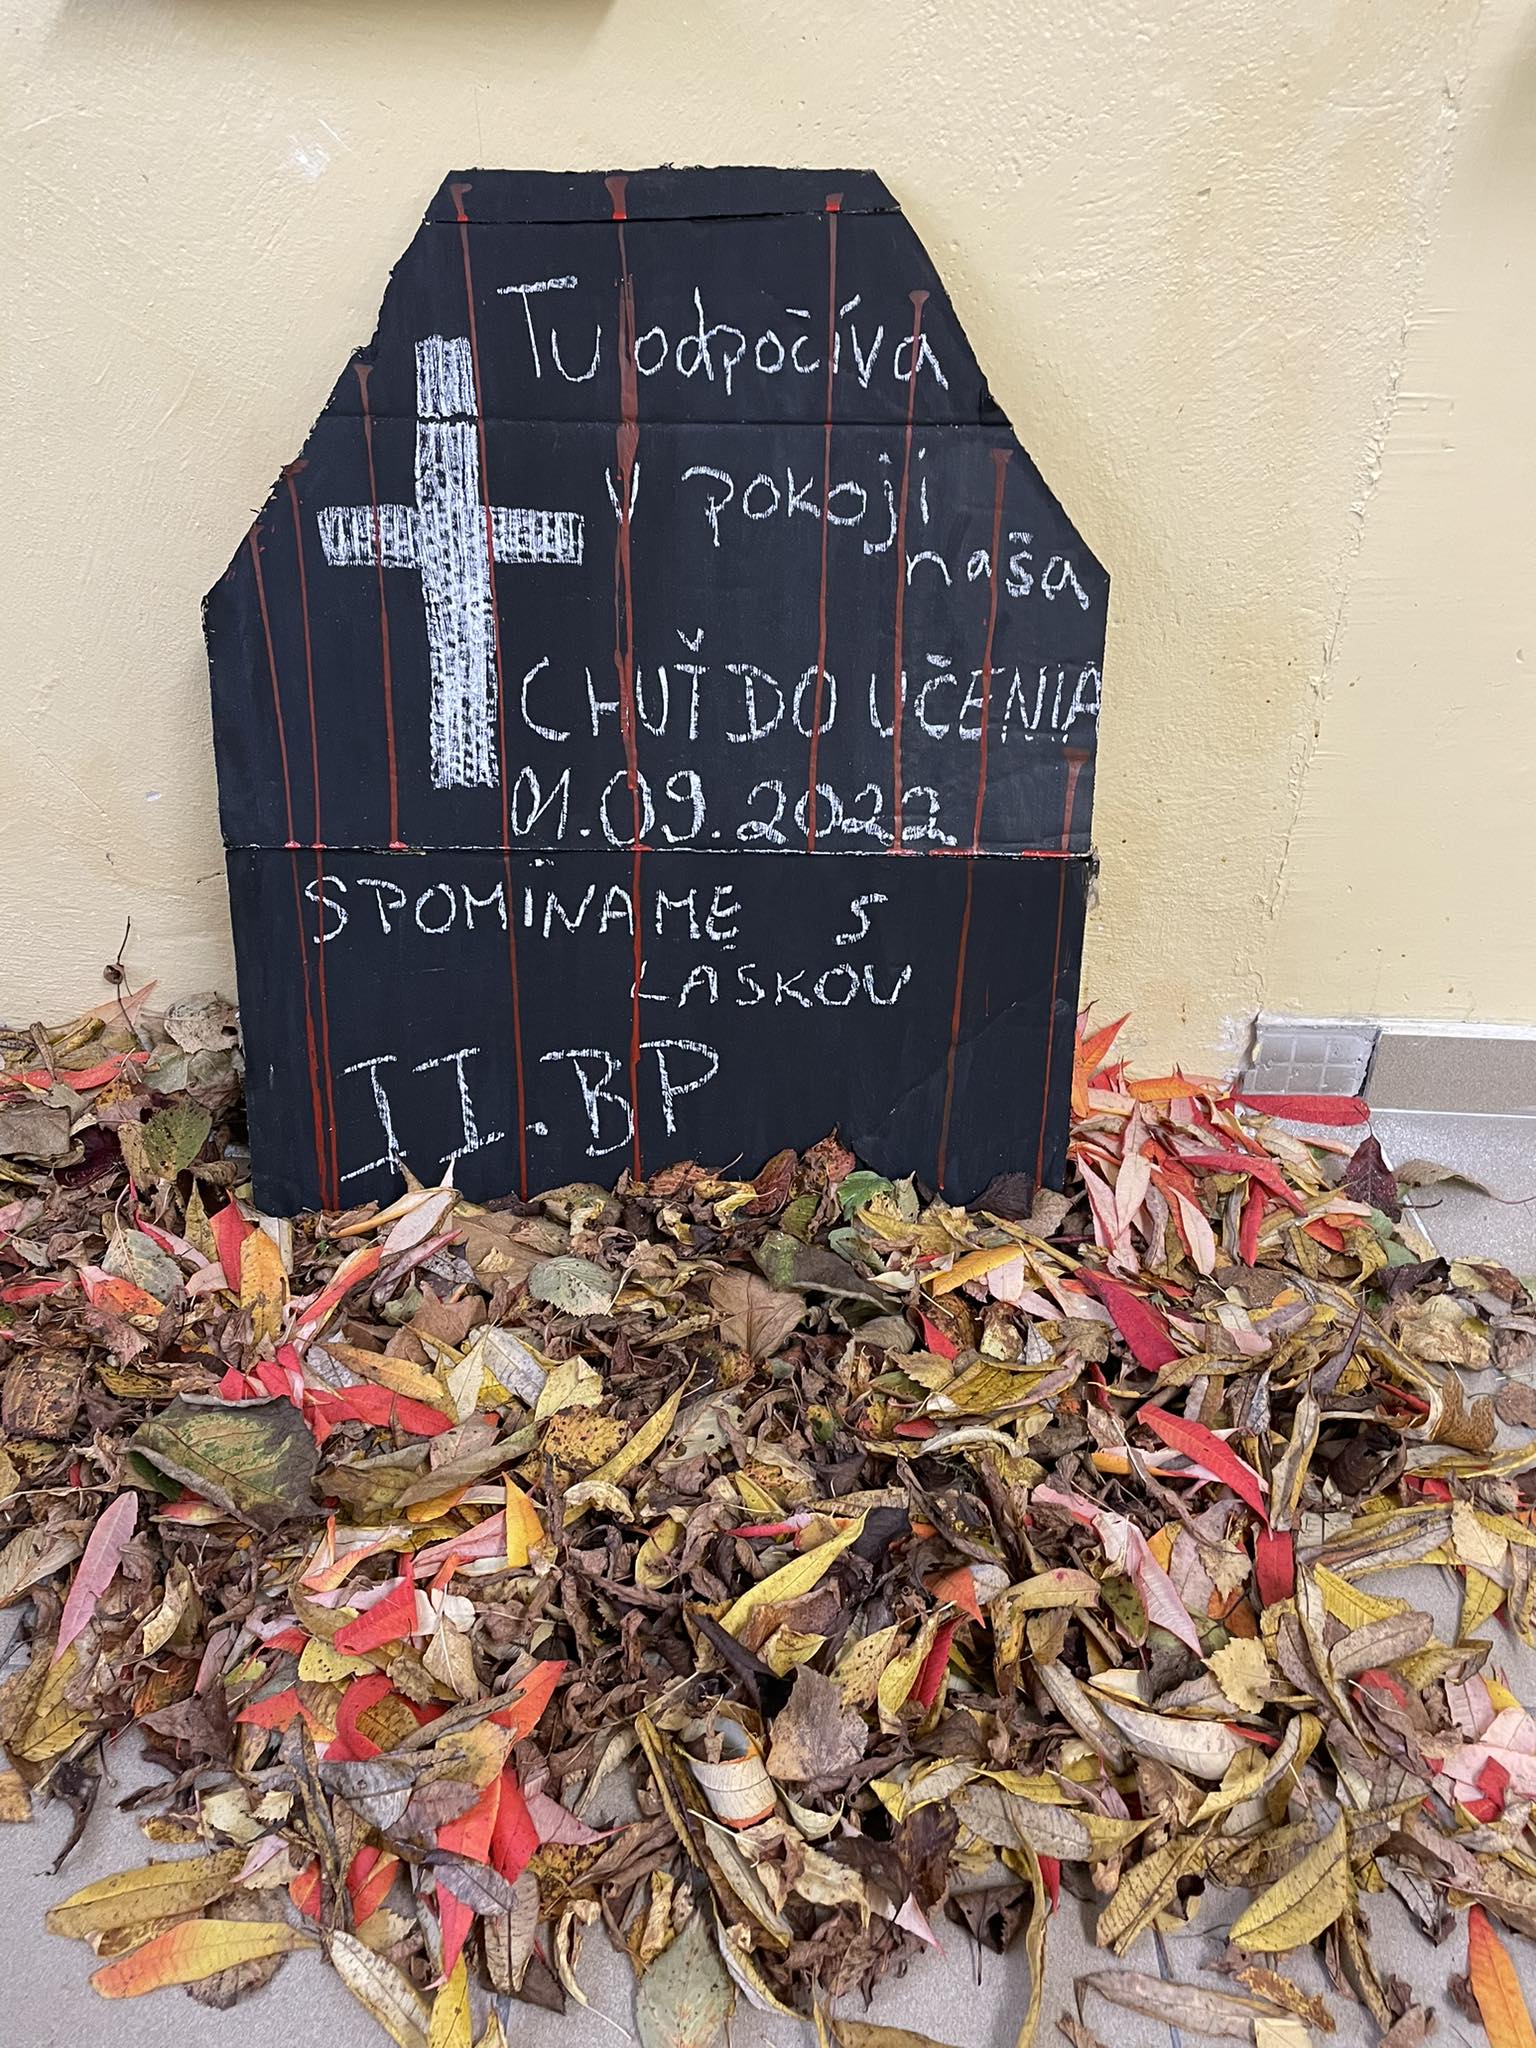 Tu odpočíva
v pokoji
naša
CHUŤ DO UČENIA
01.09.2022
SPOMÍNAME S
LÁSKOU
II.BP